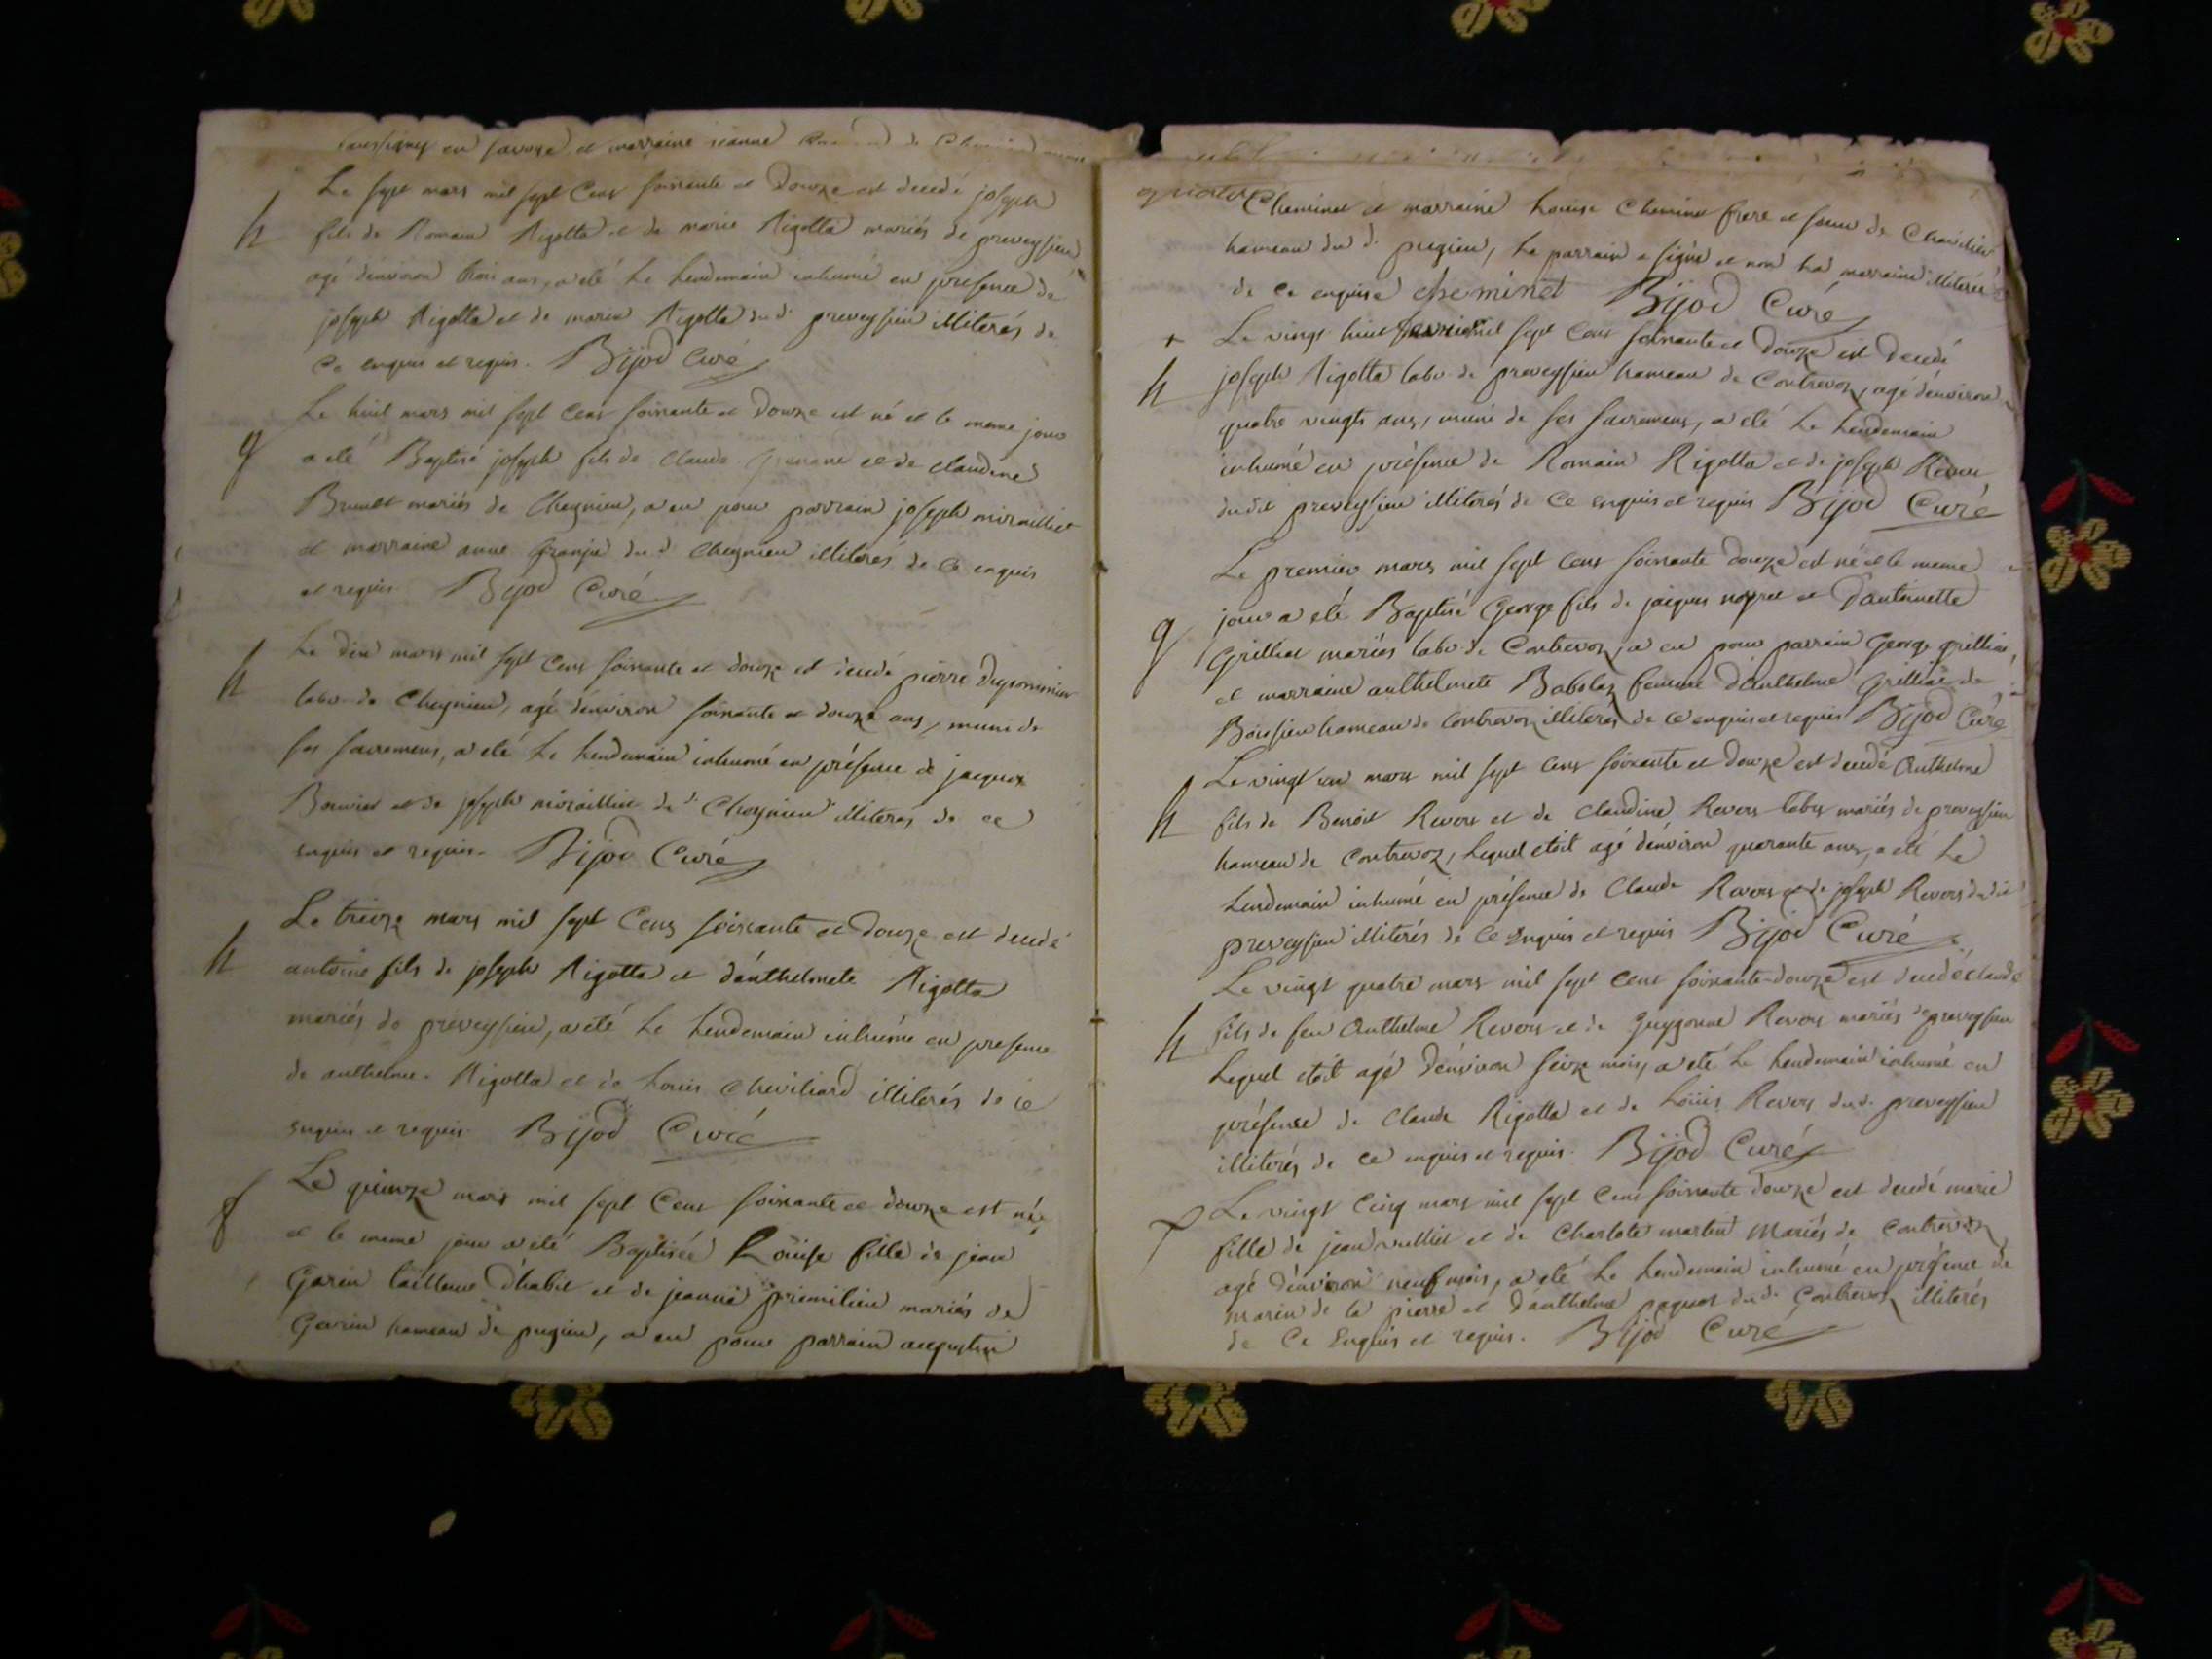 en savoye et marraine jeanne
Le sept mars mil sept cens soixante et douze est decedé joseph
h fils de Romain Rigotta et de marie Rigotta mariés de preveyssieu
agé d'environ trois ans, a eté le lendemain inhumé en presence de
joseph Rigotta et de marie Rigotta du d. preveyssieu illiterés de
ce enquis et requis. Bijod Curé
Le huit mars mil sept cens soixante et douze est né et le meme jour
g a eté Baptisé joseph fils de Claude et de claudine
Brunet mariés de Cheynieu, a eu pour parrain joseph miraillet
et marraine anne du d. Cheynieu illiterés de ce enquis
et requis. Bijod Curé
h Le dix mars mil sept cens soixante et douze est decedé pierre
labr. de Cheynieu, agé d'environ soixante et douze ans, muni de
ses sacremens, a eté le lendemain inhumé en présence de jacques
Bouvier et de joseph miraillet du d. Cheynieu illiterés de ce
enquis et requis. Bijod Curé
Le treize mars mil sept cens soixante et douze est decedé
h antoine fils de joseph Rigotta et d'anthelmete Rigotta
mariés de preveyssieu, a eté le lendemain inhumé en presence
de anthelme Rigotta et de Louis cheviliard illiterés de ce
enquis et requis. Bijod Curé
f Le quinze mars mil sept cens soixante et douze est née
et le meme jour a eté Baptisée Louise fille de jean
Garin tailleur d'habit et de jeanne primilieu mariés de
Garin hameau de pugieu, a eu pour parrain augustin
Cheminet et marraine Louise Cheminet frere et soeur de
hameau du d. pugieu, le parrain a signé et non la marraine illiterée
de ce enquise cheminet Bijod Curé
+ Le vingt huit fevrier mil sept cens soixante et douze est decedé
h joseph Rigotta labr. de preveyssieu hameau de Contrevoz, agé d'environ
quatre vingts ans, muni de ses sacremens, a eté le lendemain
inhumé en présence de Romain Rigotta et de joseph
du dit preveyssieu illiterés de ce enquis et requis Bijod Curé
Le premier mars mil sept cens soixante douze est né et le meme
g jour a eté Baptisé George fils de jacques et d'antoinette
Grilliet mariés labr. de Contrevoz, a eu pour parrain George grilliet
et marraine anthelmete Babolaz femme d'anthelme Grilliet de
Boissieu hameau de Contrevoz illiterés de ce enquis et requis Bijod Curé
Le vingt un mars mil sept cens soixante et douze est decedé Anthelme
h fils de Benoit Revers et de Claudine Revers labrs. mariés de preveyssieu
hameau de Contrevoz, lequel étoit agé d'environ quarante ans, a eté le
lendemain inhumé en présence de Claude Revers et de joseph Revers du dit
preveyssieu illiterés de ce enquis et requis Bijod Curé
Le vingt quatre mars mil sept cens soixante-douze est decedé claude
h fils de feu Anthelme Revers et de Guygonne Revers mariés de preveyssieu
lequel étoit agé d'environ seize mois, a eté le lendemain inhumé en
présence de Claude Rigotta et de Loüis Revers du d. preveyssieu
illiterés de ce enquis et requis. Bijod Curé
Le vingt cinq mars mil sept cens soixante douze est decedé marie
fille de jean vulliet et de Charlote martin Mariés de Contrevoz
agé d'environ neuf mois, a eté le lendemain inhumé en présence de
marin de la pierre et d'anthelme du d. Contrevoz illiterés
de ce Enquis et requis. Bijod Curé